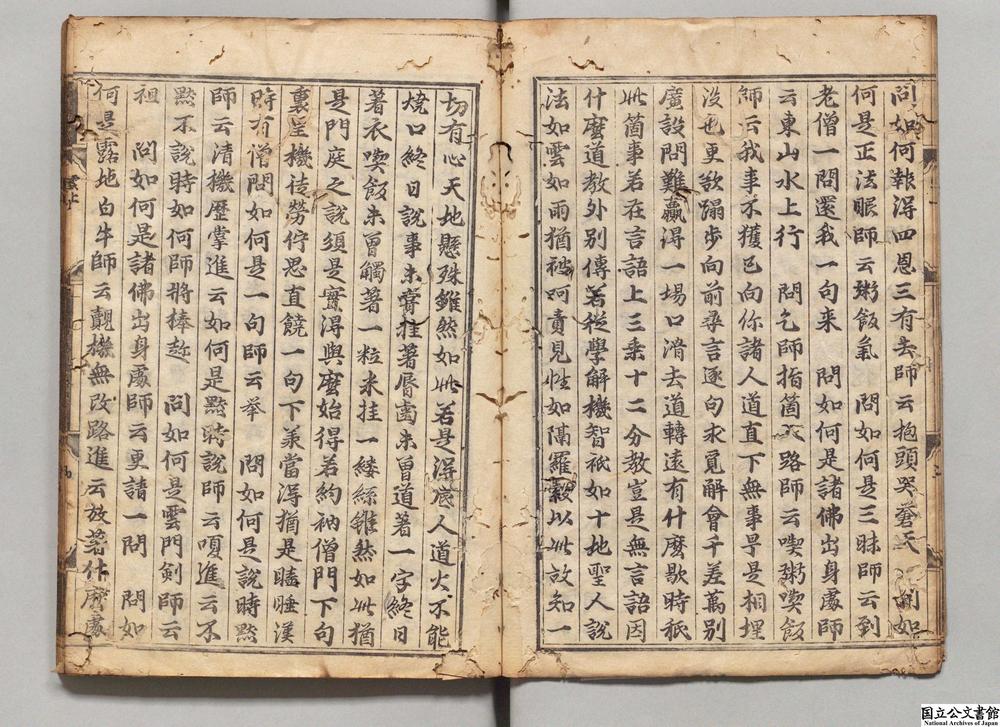 問如何報得四恩三有去師云抱頭哭蒼天 問如
何是正法眼師云粥飯氣 問如何是三昧師云到
老僧一問還我一句来 問如何是諸佛出身處師
云東山水上行 問乞師指箇入路師云喫粥喫飯
師云我事不獲已向你諸人道直下無事早是相埋
没也更欲蹋步向前尋言逐句求覓解會千差萬別
廣設問難贏得一場口滑去道轉遠有什麼歇時秖
此箇事若在言語上三乗十二分教豈是無言語因
什麼道教外別傳若從學解機智秖如十地聖人說
法如雲如雨猶被呵責見性如隔羅縠以此故知一
切有心天地懸殊雖然如此若是得底人道火不能
燒口終日說事未甞挂著脣齒未曾道著一字終日
著衣喫飯未曾觸著一粒米挂一縷絲雖然如此猶
是門庭之說須是實得與麼始得若約衲僧門下句
裏呈機徒勞佇思直饒一句下承當得猶是瞌睡漢
時有僧問如何是一句師云举 問如何是說時黙
師云清機歷掌進云如何是黙時說師云嗄進云不
黙不說時如何師將棒趂 問如何是雲門剣師云
祖 問如何是諸佛出身處師云更請一問 問如
何是露地白牛師云覿機無改路進云放著什麼處
國立公文書館
National Archives of Japan